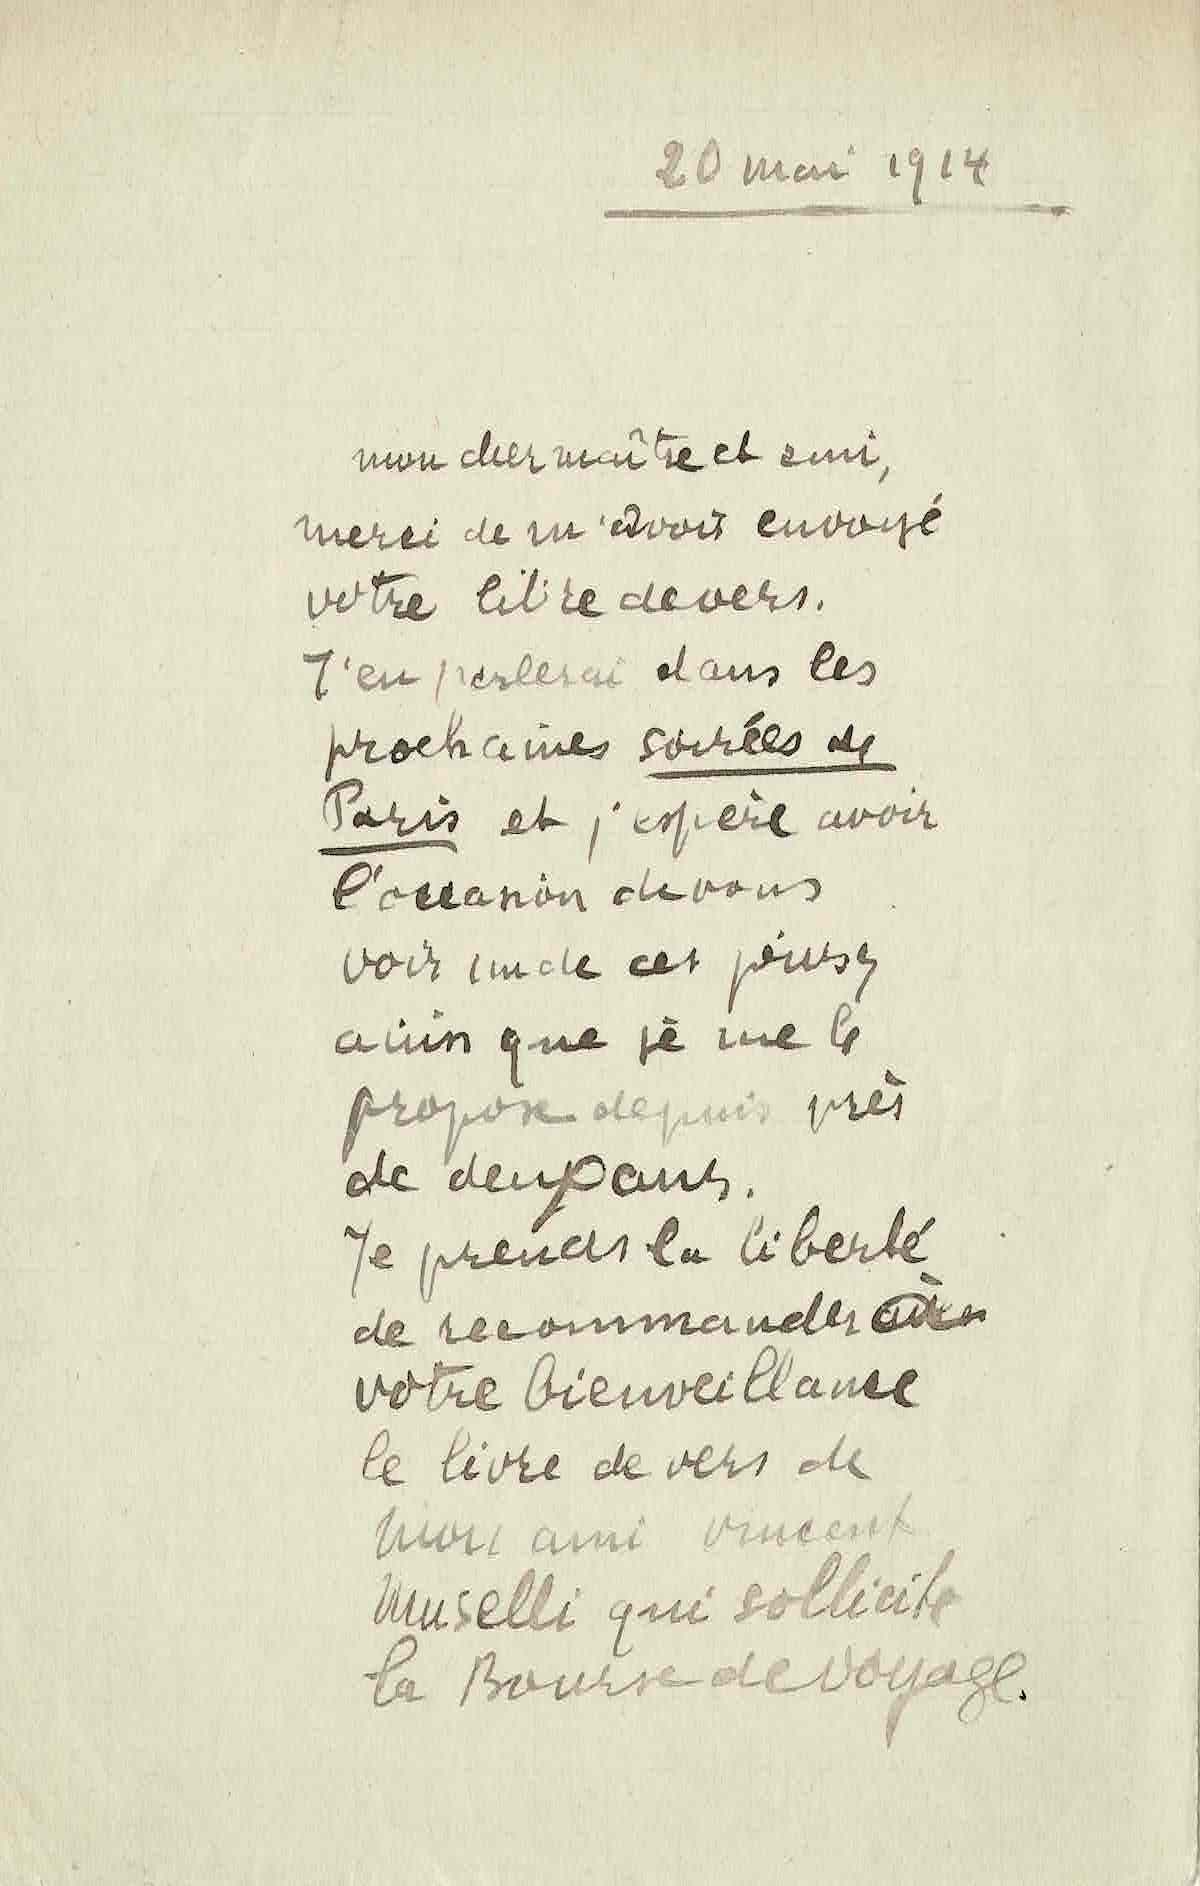 20 mai 1914
mon cher maître et ami,
merci de m'avoir envoyé
votre livre de vers.
J'en parlerai dans les
prochaines soirées de
Paris et j'espère avoir
l'occasion de vous
voir un de ces jours
ainsi que je me le
propose depuis près
de deux ans.
Je prends la liberté
de recommander à
votre bienveillance
le livre de vers de
mon ami vincent
Muselli qui sollicite
la Bourse de voyage.